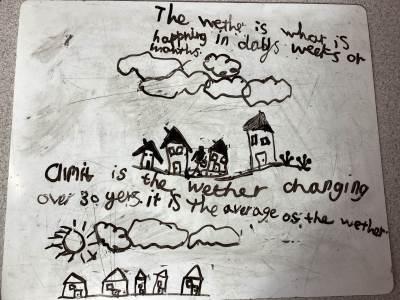 The wether is what is
happning in days weeks or
months.
Climit is the wether changing
over 30 yers. it is The average of the wether